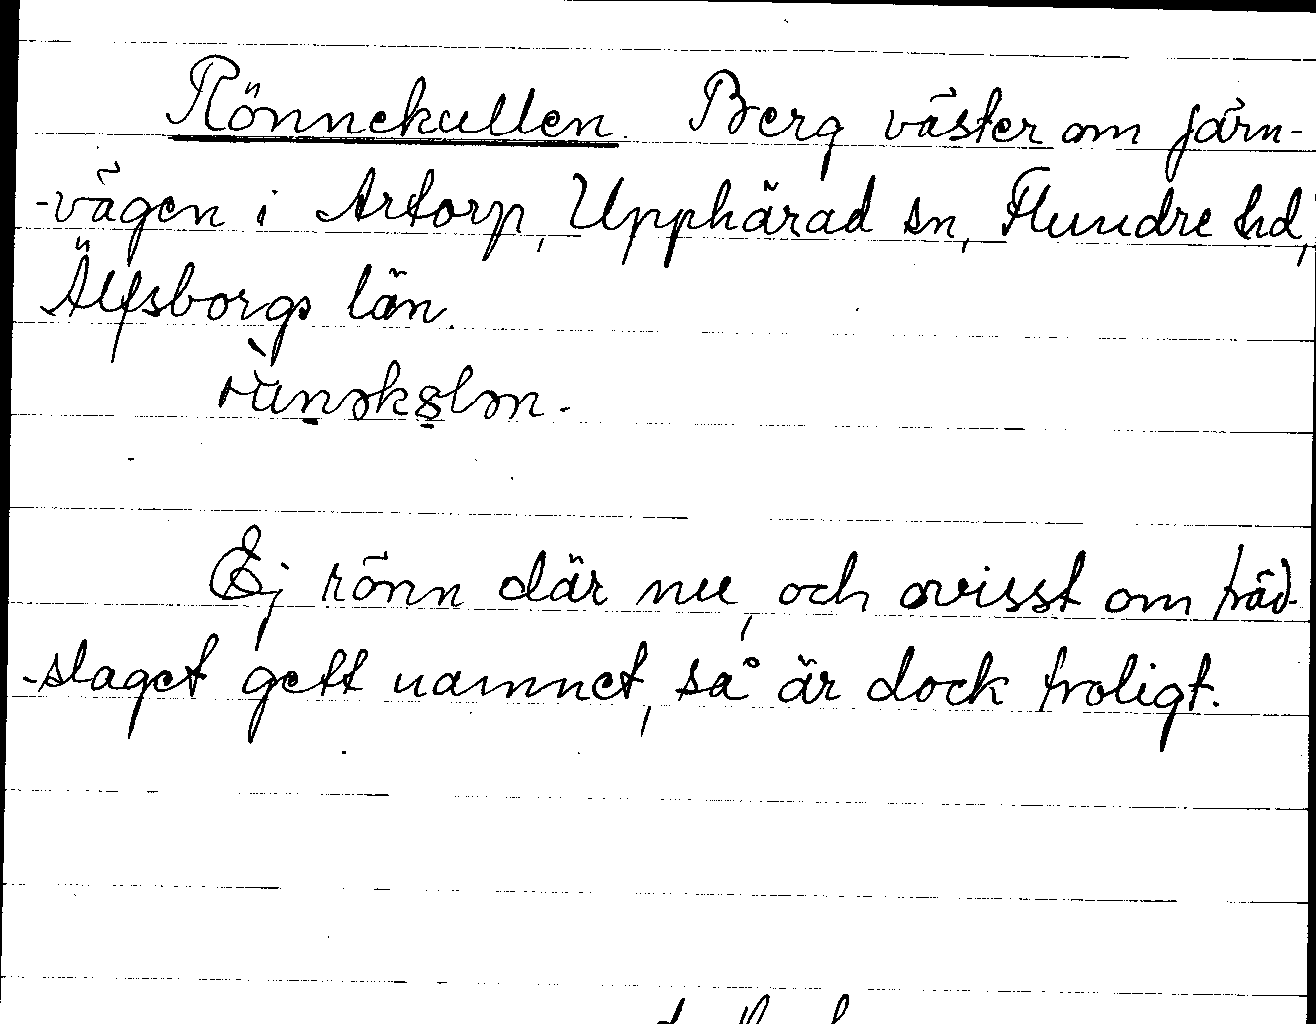 Rönnekullen. Berg väster om järn-
-vägen i Artorp, Upphärad sn, Flundre hd,
Älfsborgs län.
Ej rönn där nu, och ovisst om träd-
-slaget gett namnet, så är dock troligt.